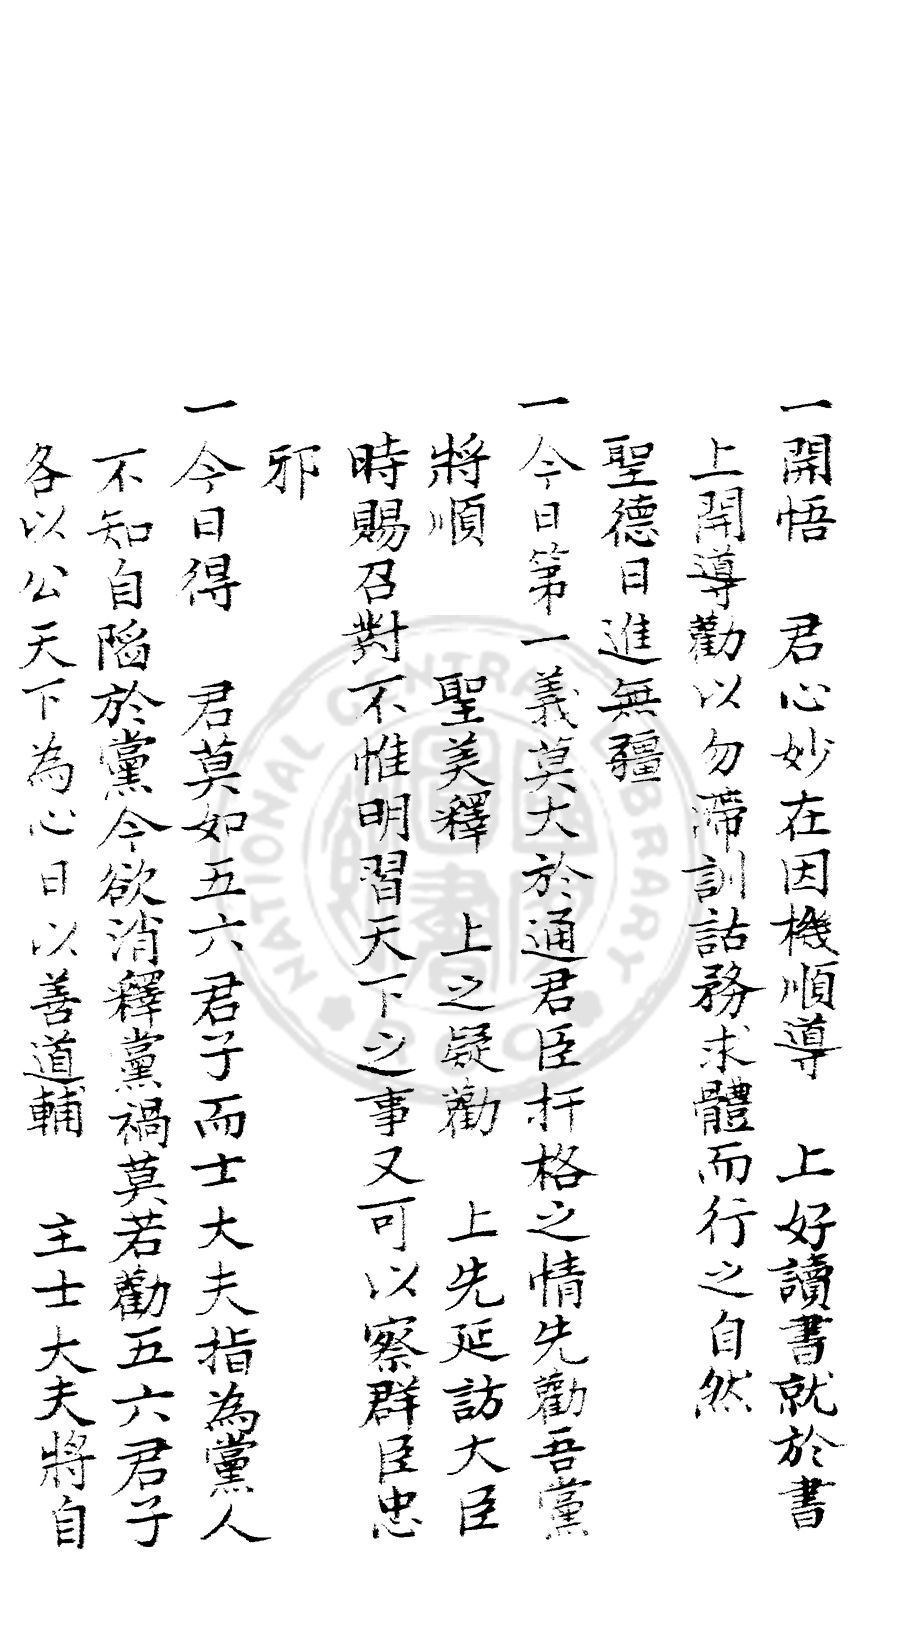 一開悟　君心妙在因機順導　上好讀書就於書
上開導勸以勿滯訓詁務求體而行之自然
聖德日進無疆
一今日第一義莫大於通君臣扞格之情先勸吾黨
將順　聖美釋　上之疑勸　上先延訪大臣
時賜召對不惟明習天下之事又可以察群臣忠
邪
一今日得　君莫如五六君子而士大夫指為黨人
不知自陷於黨今欲消釋黨禍莫若勸五六君子
各以公天下為心日以善道輔　主士大夫將自
NATIONAL CENTRAL LIBRARY